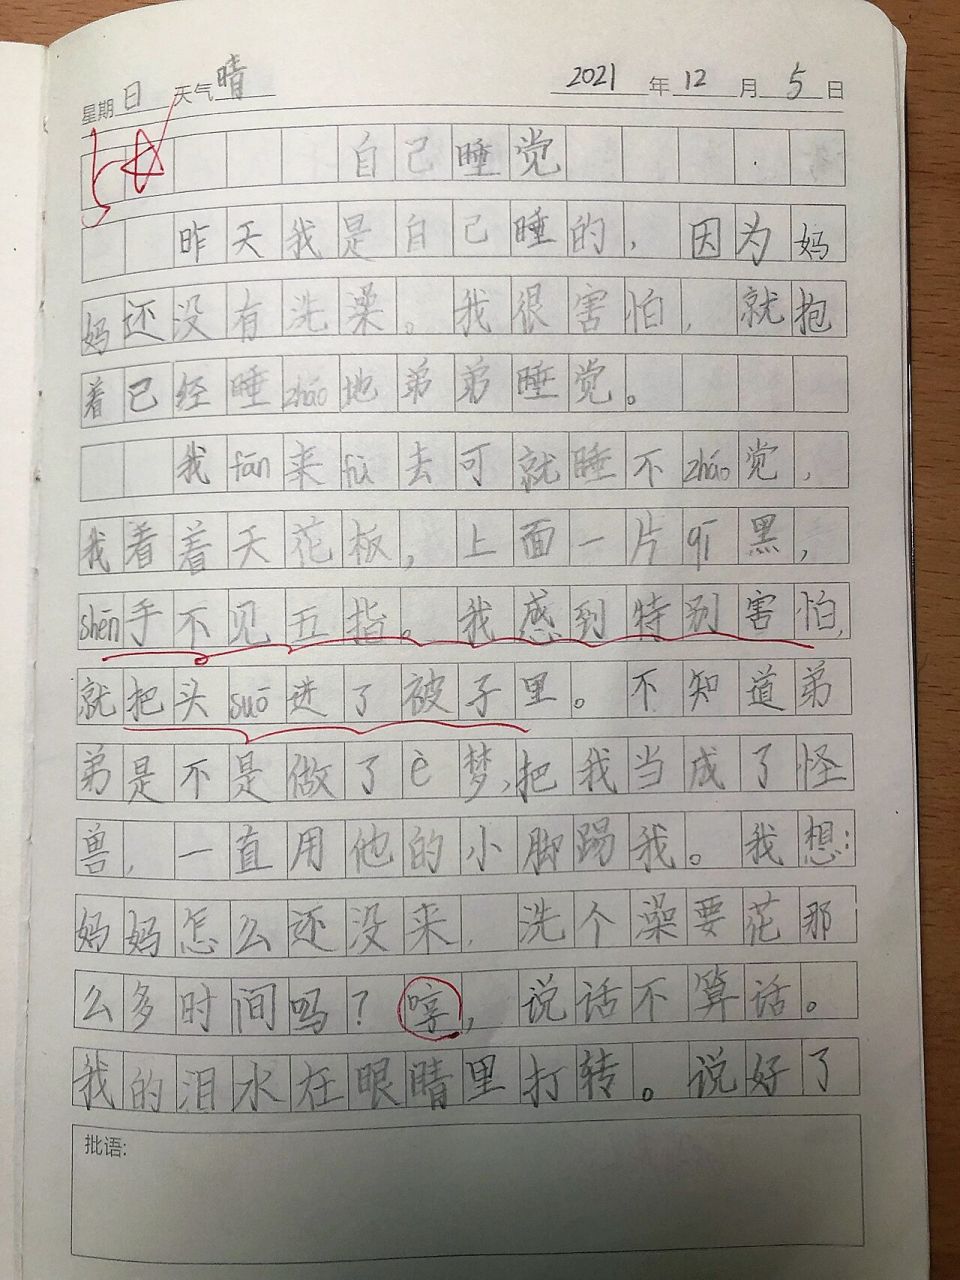 星期日 天气晴 2021年12月5日
5☆
自己睡觉
昨天我是自己睡的，因为妈
妈还没有洗澡。我很害怕，就抱
着已经睡zháo地弟弟睡觉。
我fān来fù去可就睡不zháo觉，
我看着天花板，上面一片qī黑，
shēn手不见五指。我感到特别害怕，
就把头suō进了被子里。不知道弟
弟是不是做了è梦，把我当成了怪
兽，一直用他的小脚踢我。我想：
妈妈怎么还没来，洗个澡要花那
么多时间吗？哼，说话不算话。
我的泪水在眼睛里打转。说好了
批语: